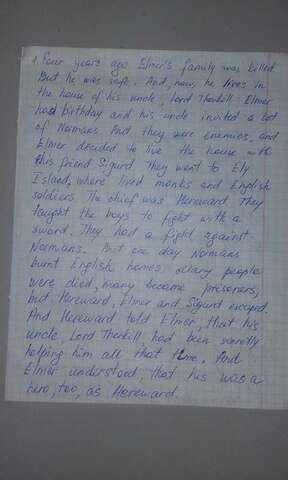 1. Four years ago Elmer's family was killed.
But he was safe. And, now, he lives in
the house of his uncle, Lord Thorkill. Elmer
had birthday and his uncle invited a lot
of Normans. And they were enemies, and
Elmer decided to live the house with
his friend Sigurd. They went to Ely
Island, where lived monks and English
soldiers. The chief was Hereward. They
taught the boys to fight with a
sword. They had a fight against
Normans. But one day Normans
burnt English homes. Many people
were died, many become prisoners,
but Hereward, Elmer and Sigurd escaped.
And Hereward told Elmer, that his
uncle, Lord Thorkill, had been secretly
helping him all that time. And
Elmer understood, that his was a
hero, too, as Hereward.